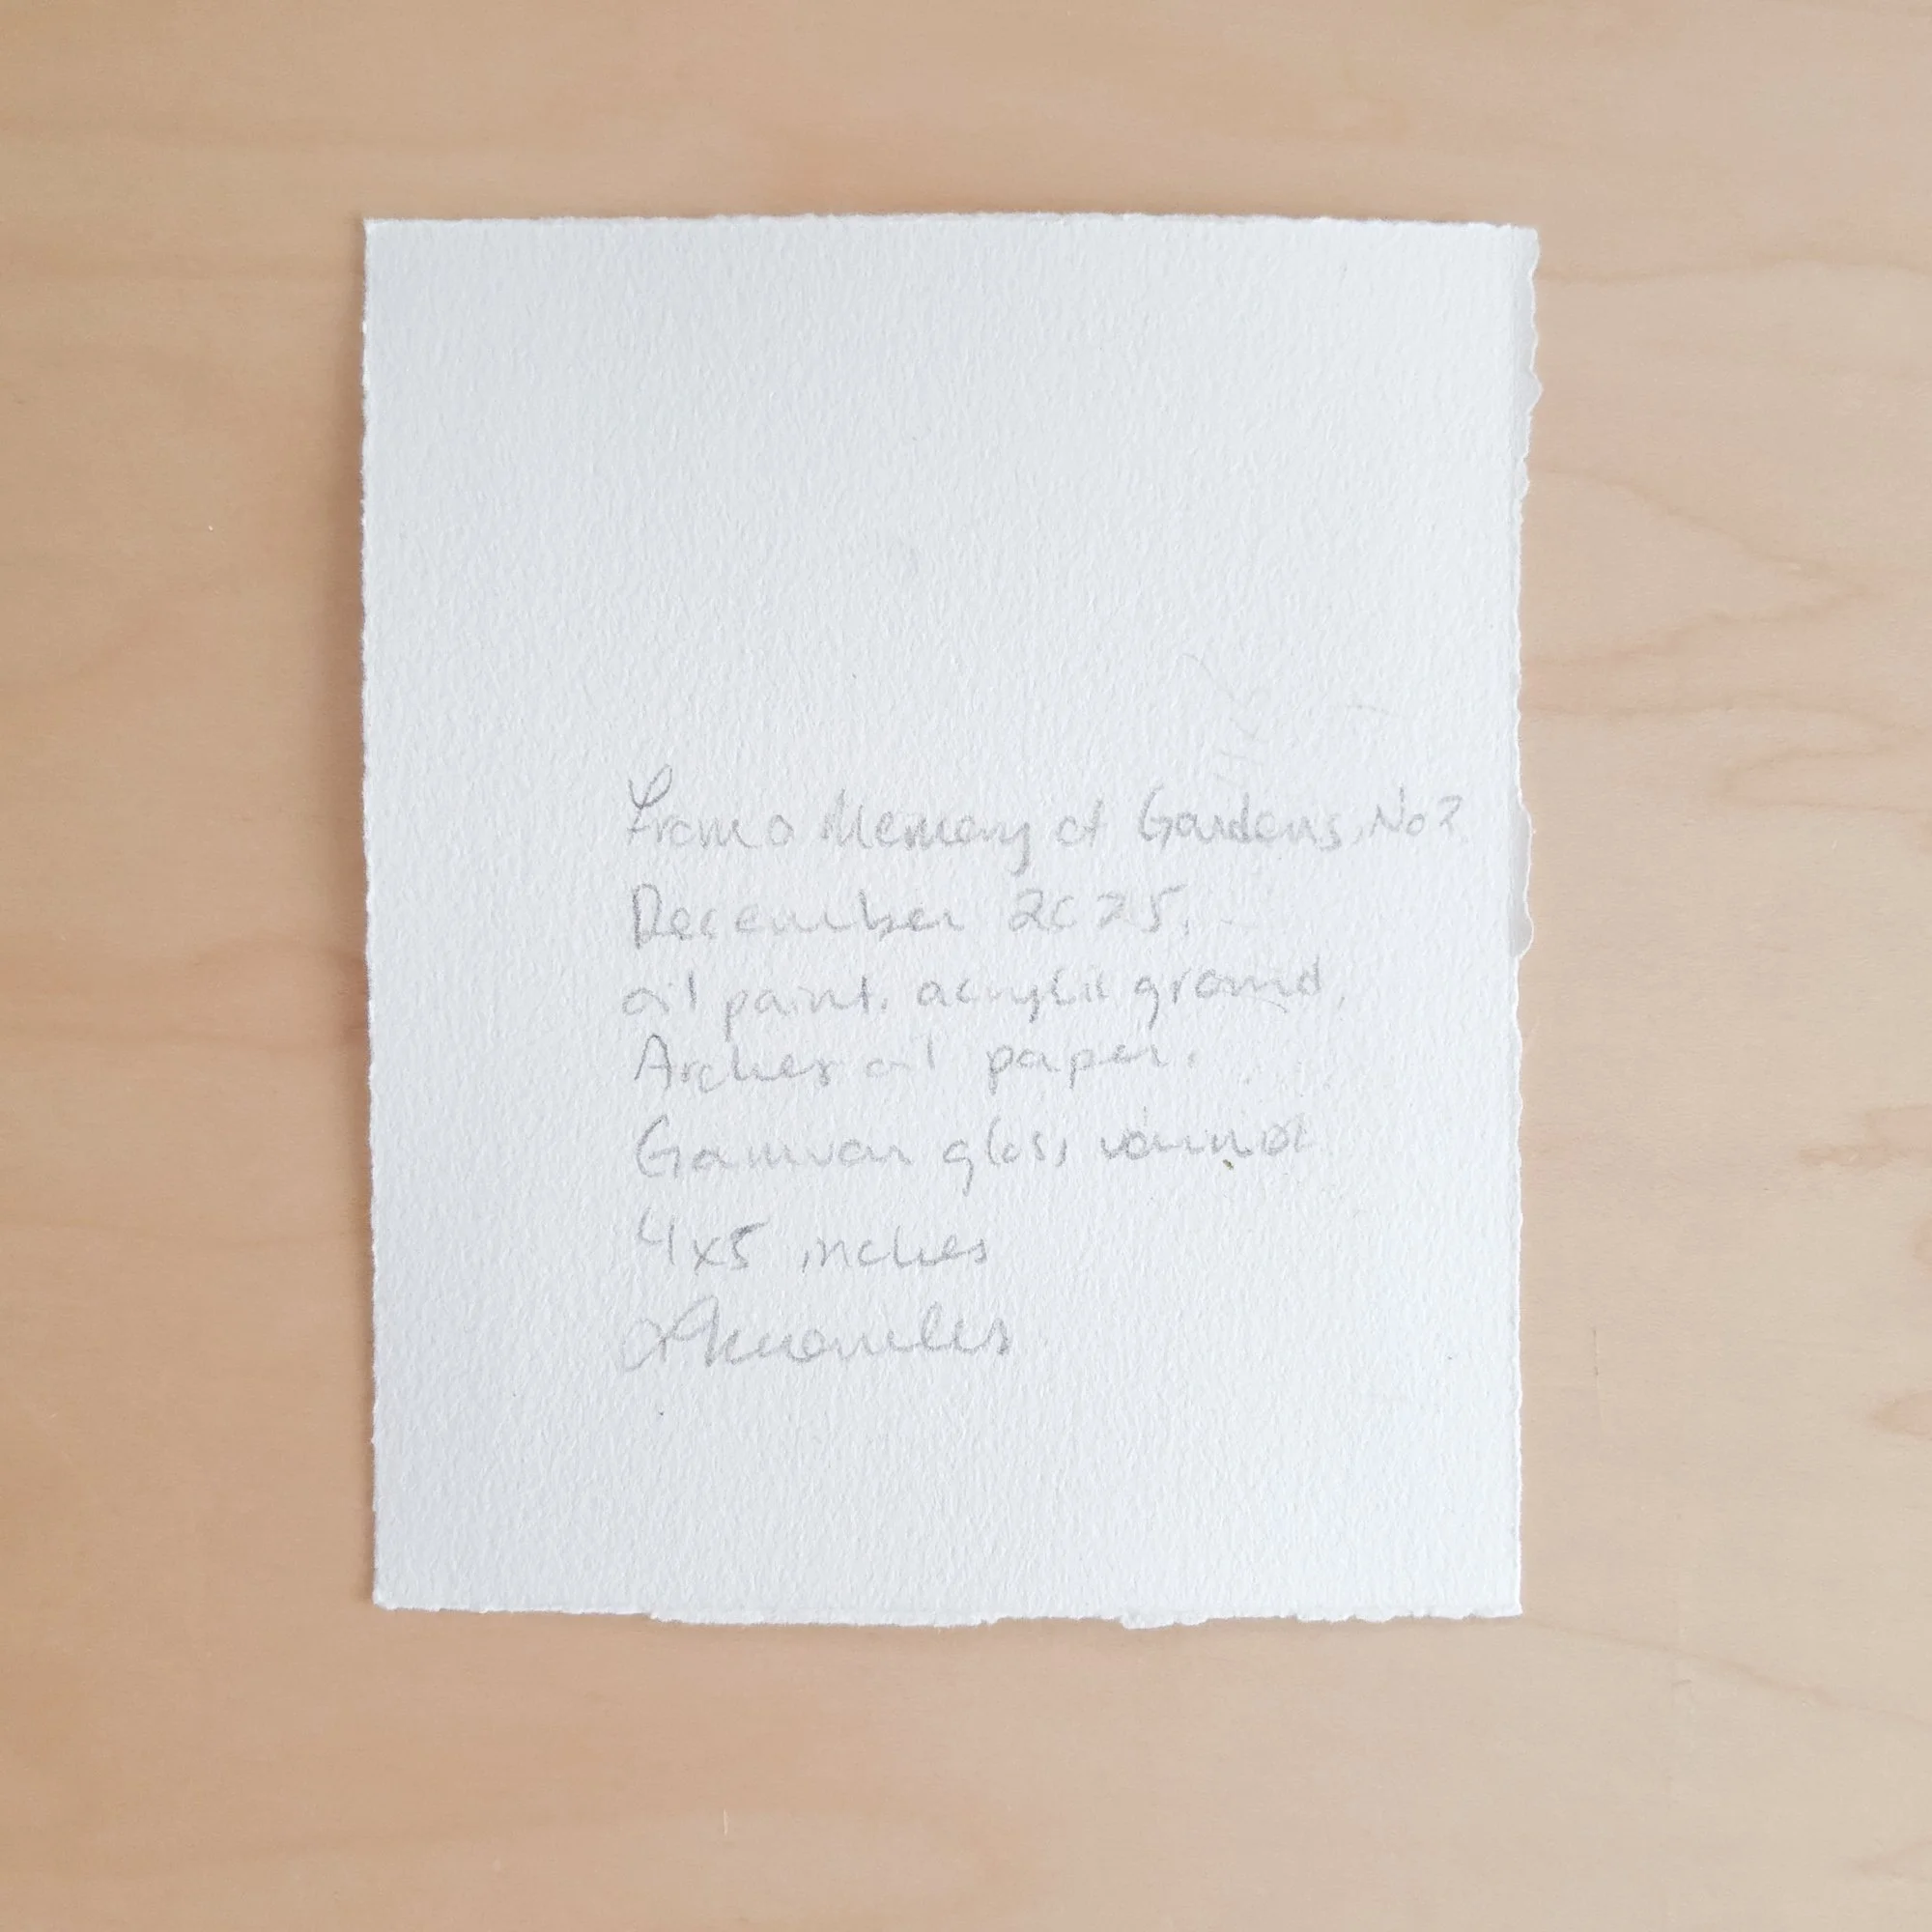 From a Memory of Gardens, No 2
December 2025.
oil paint. acrylic ground.
Arches oil paper.
Gamvar gloss varnish
4x5 inches